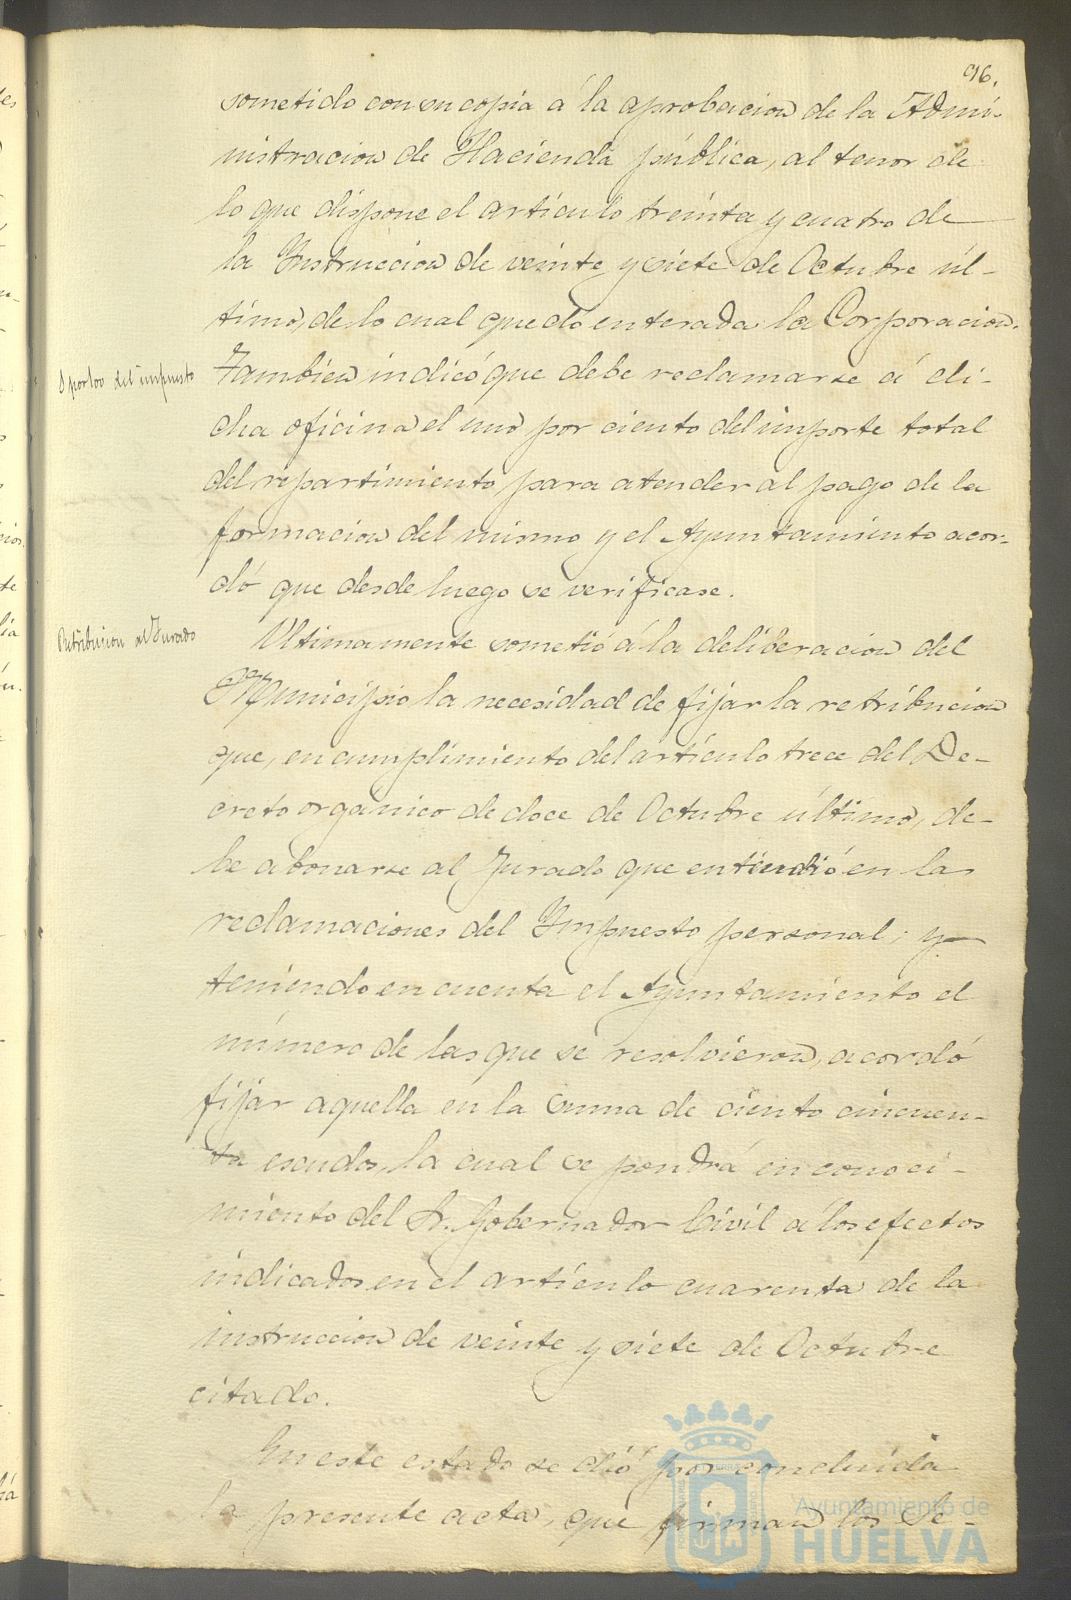 96.
sometido con su copia á la aprobacion de la Admi-
nistracion de Hacienda pública, al tenor de
lo que dispone el articulo treinta y cuatro de
la Instruccion de veinte y siete de Octubre úl-
timo, de lo cual quedó enterada la Corporacion.
del impuesto
Tambien indicó que debe reclamarse á di-
cha oficina el uno por ciento del importe total
del repartimiento para atender al pago de la
formacion del mismo y el Ayuntamiento acor-
dó que desde luego se verificase.
Retribucion al Jurado
Ultimamente sometió á la deliberacion del
Municipio la necesidad de fijar la retribucion
que, en cumplimiento del artículo trece del De-
creto orgánico de doce de Octubre último, de-
be abonarse al Jurado que entendió en las
reclamaciones del Impuesto personal; y
teniendo en cuenta el Ayuntamiento el
número de las que se resolvieron, acordó
fijar aquella en la suma de ciento cincuen-
ta escudos, la cual se pondrá en conoci-
miento del Sr. Gobernador Civil á los efectos
indicados en el artículo cuarenta de la
instruccion de veinte y siete de Octubre
citado.
En este estado se dió por concluida
la presente acta, que firman los Se-
Ayuntamiento de
HUELVA